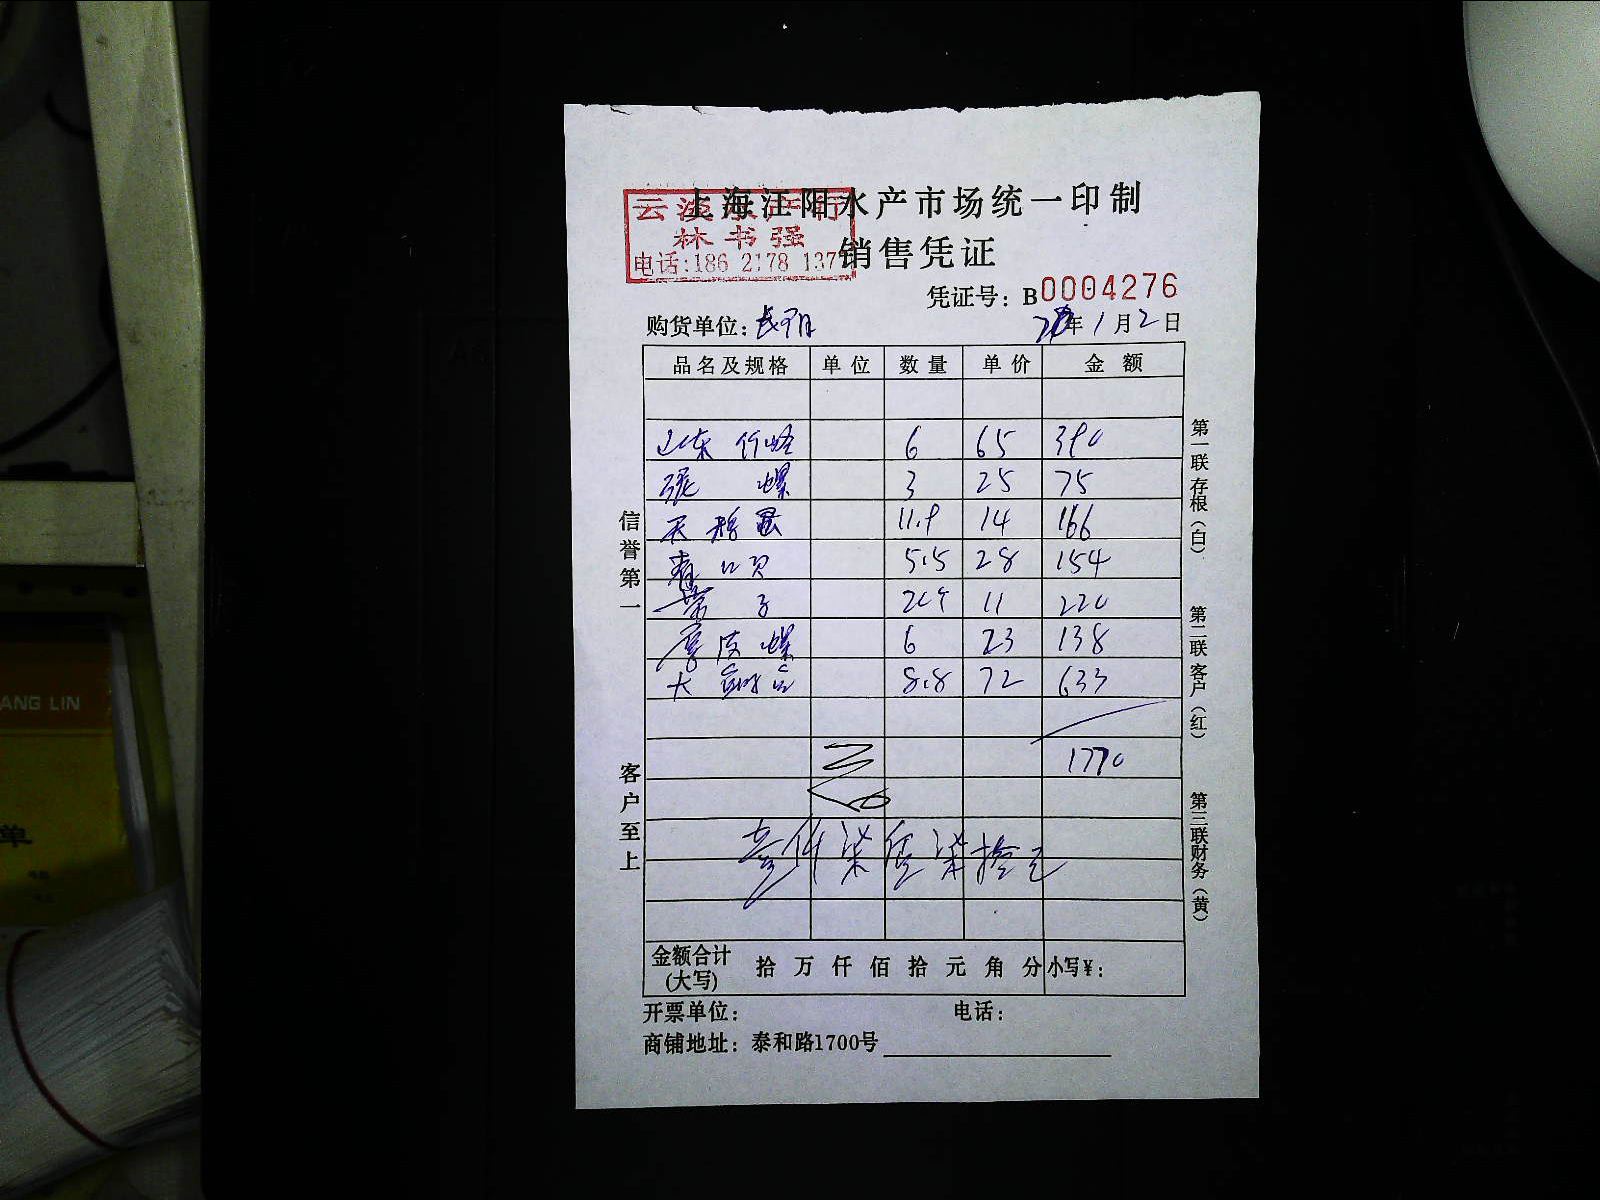 上海江阳水产市场统一印制
云波水产行
林书强
电话:186 2178 137
销售凭证
凭证号：B0004276
购货单位：长阳 年1月2日
品名及规格 单位 数量 单价 金额
山东竹蛏 6 65 390
张螺 3 25 75
11.9 14 166
青口贝 5.5 28 154
子 11 220
摩皮螺 6 23 138
大 8.8 72 633
1770
壹仟柒佰柒拾元
金额合计(大写) 拾万仟佰拾元角分 小写¥：
开票单位： 电话：
商铺地址：泰和路1700号
信誉第一
客户至上
第一联存根（白）
第二联客户（红）
第三联财务（黄）
ANG LIN
单